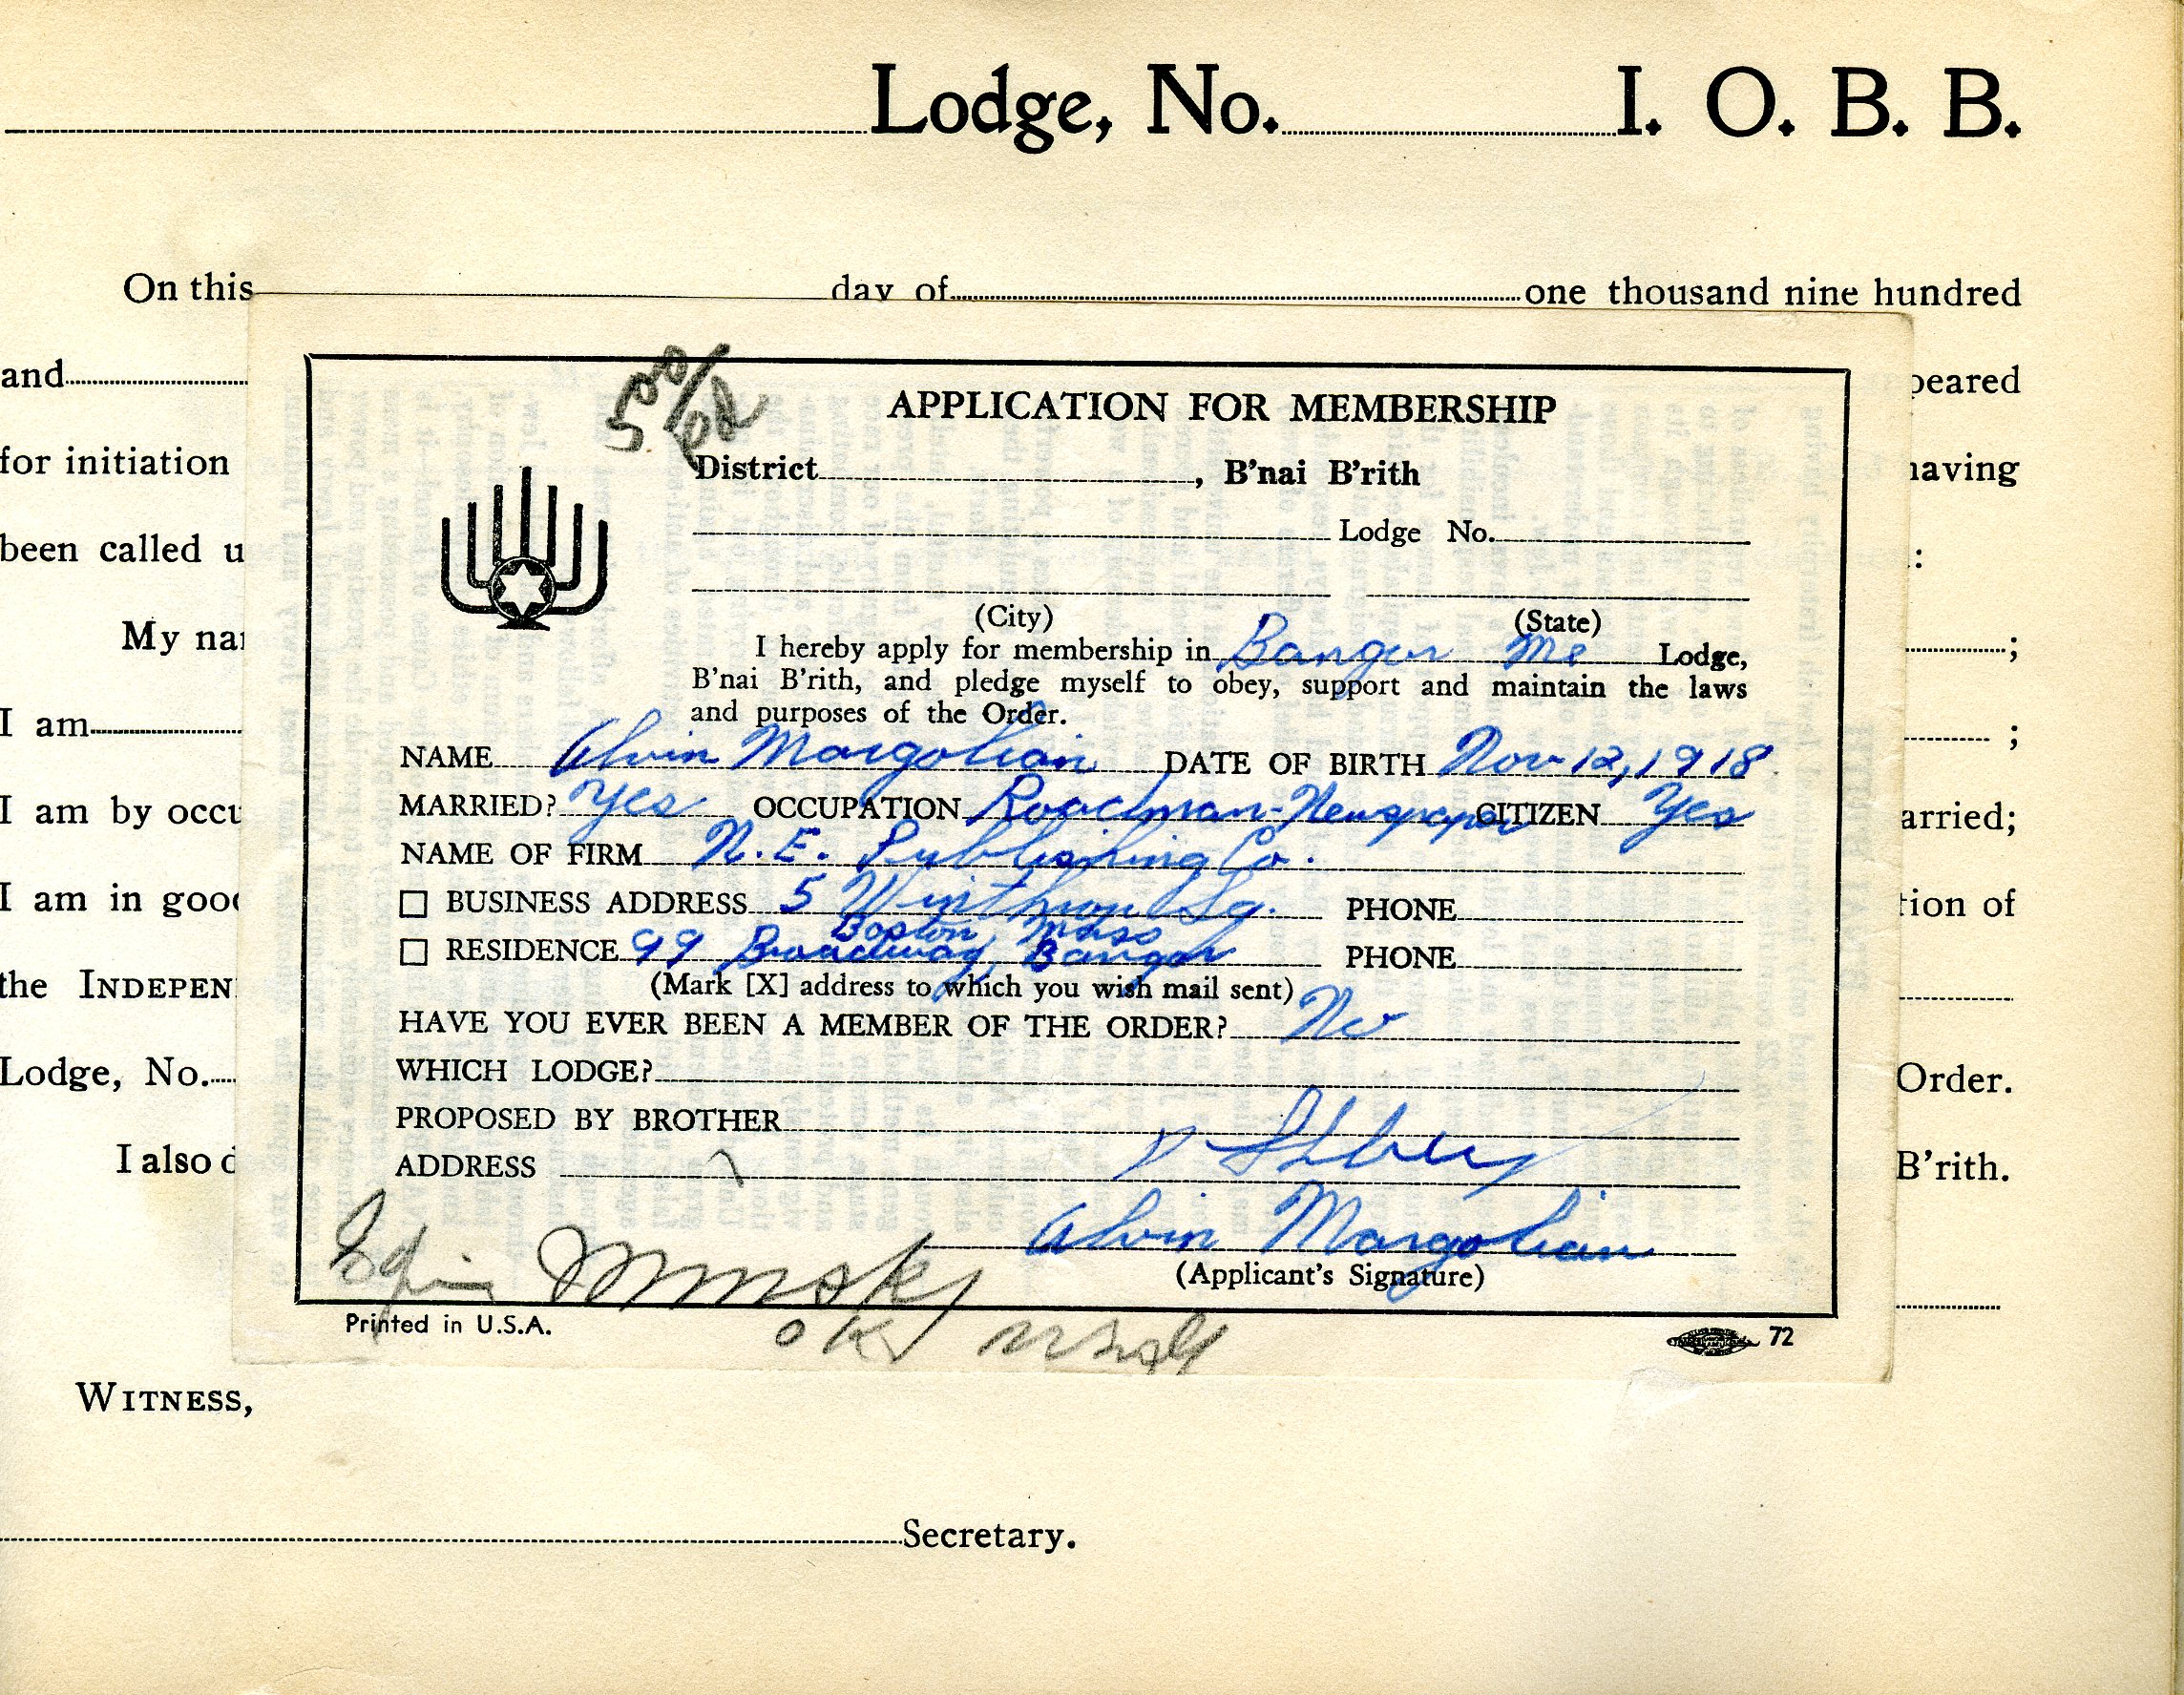 Lodge, No. I. O. B. B.
On this day of one thousand nine hundred
and peared
for initiation having
been called u :
My nar ;
I am ;
I am by occu arried;
I am in good tion of
the INDEPEN
Lodge, No. Order.
I also d B'rith.
WITNESS,
Secretary.
5.00/pd
APPLICATION FOR MEMBERSHIP
District , B'nai B'rith
Lodge No.
(City) (State)
I hereby apply for membership in Bangor Me Lodge,
B'nai B'rith, and pledge myself to obey, support and maintain the laws
and purposes of the Order.
NAME Alvin Margolian DATE OF BIRTH Nov 12, 1918
MARRIED? Yes OCCUPATION Roadman-Newspaper CITIZEN Yes
NAME OF FIRM N.E. Publishing Co.
BUSINESS ADDRESS 5 Winthrop Sq. PHONE
Boston, Mass
RESIDENCE 99 Broadway, Bangor PHONE
(Mark [X] address to which you wish mail sent)
HAVE YOU EVER BEEN A MEMBER OF THE ORDER? No
WHICH LODGE?
PROPOSED BY BROTHER
ADDRESS
Alvin Margolian
(Applicant's Signature)
Minsky
OK
Printed in U.S.A.
72